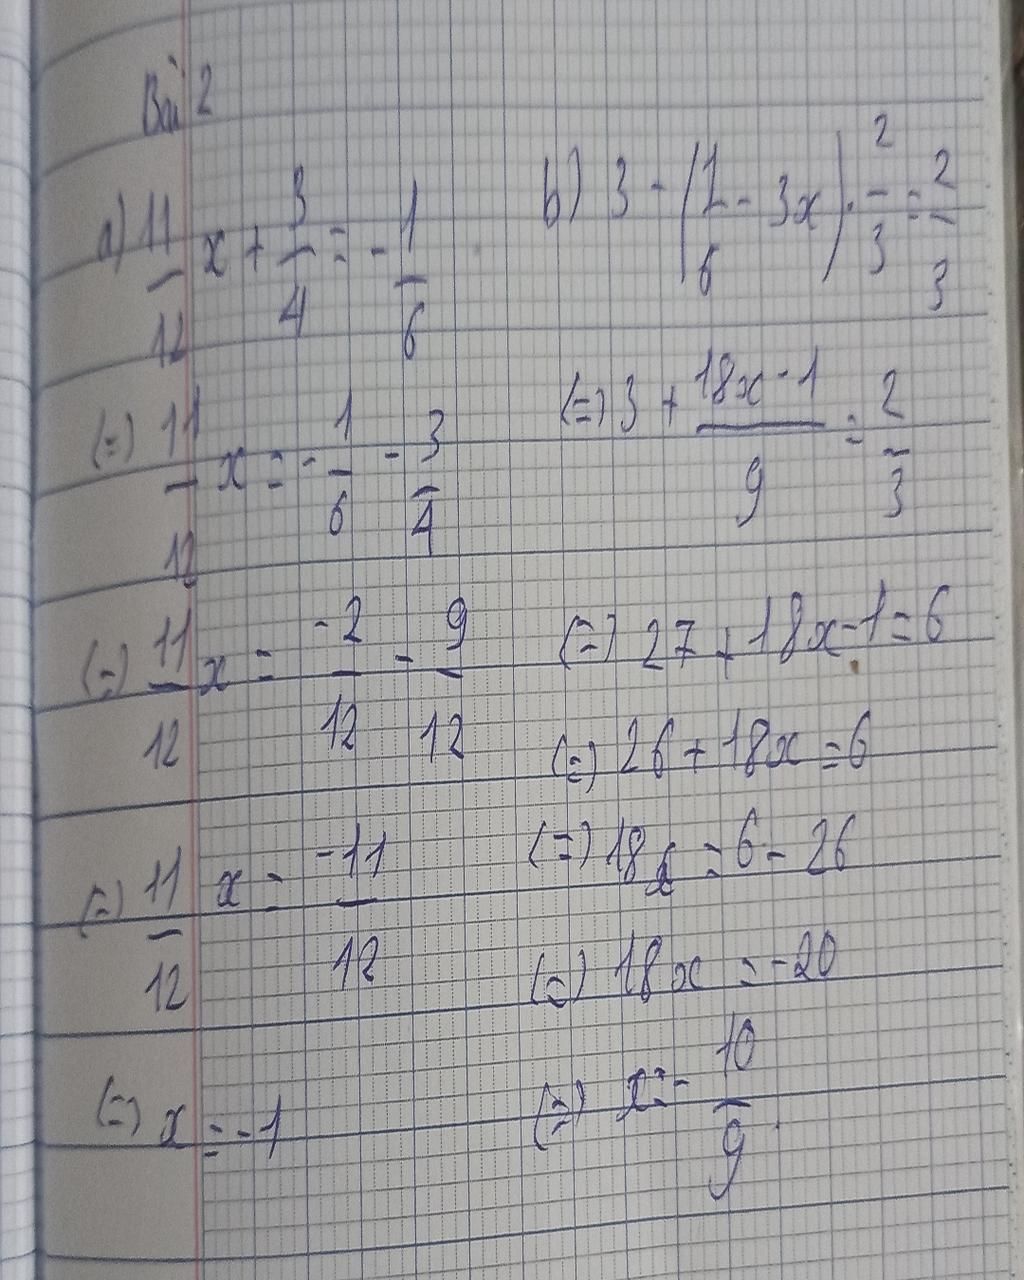 Bài 2
a) 11/12 x + 3/4 = - 1/6
(=) 11/12 x = - 1/6 - 3/4
(=) 11/12 x = -2/12 - 9/12
(=) 11/12 x = -11/12
(=) x = -1
b) 3 - (1/6 - 3x) . 2/3 = 2/3
(=) 3 + 18x - 1/9 = 2/3
(=) 27 + 18x - 1 = 6
(=) 26 + 18x = 6
(=) 18x = 6 - 26
(=) 18x = -20
(=) x = - 10/9